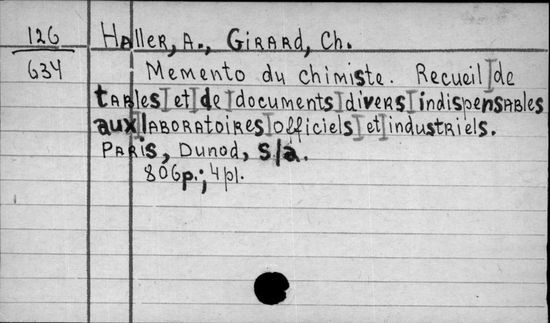 126
634
Haller, A., Girard, Ch.
Memento du chimiste. Recueil de
tables et de documents divers indispensables
aux laboratoires officiels et industriels.
Paris, Dunod, s/a.
806p.; 4pl.